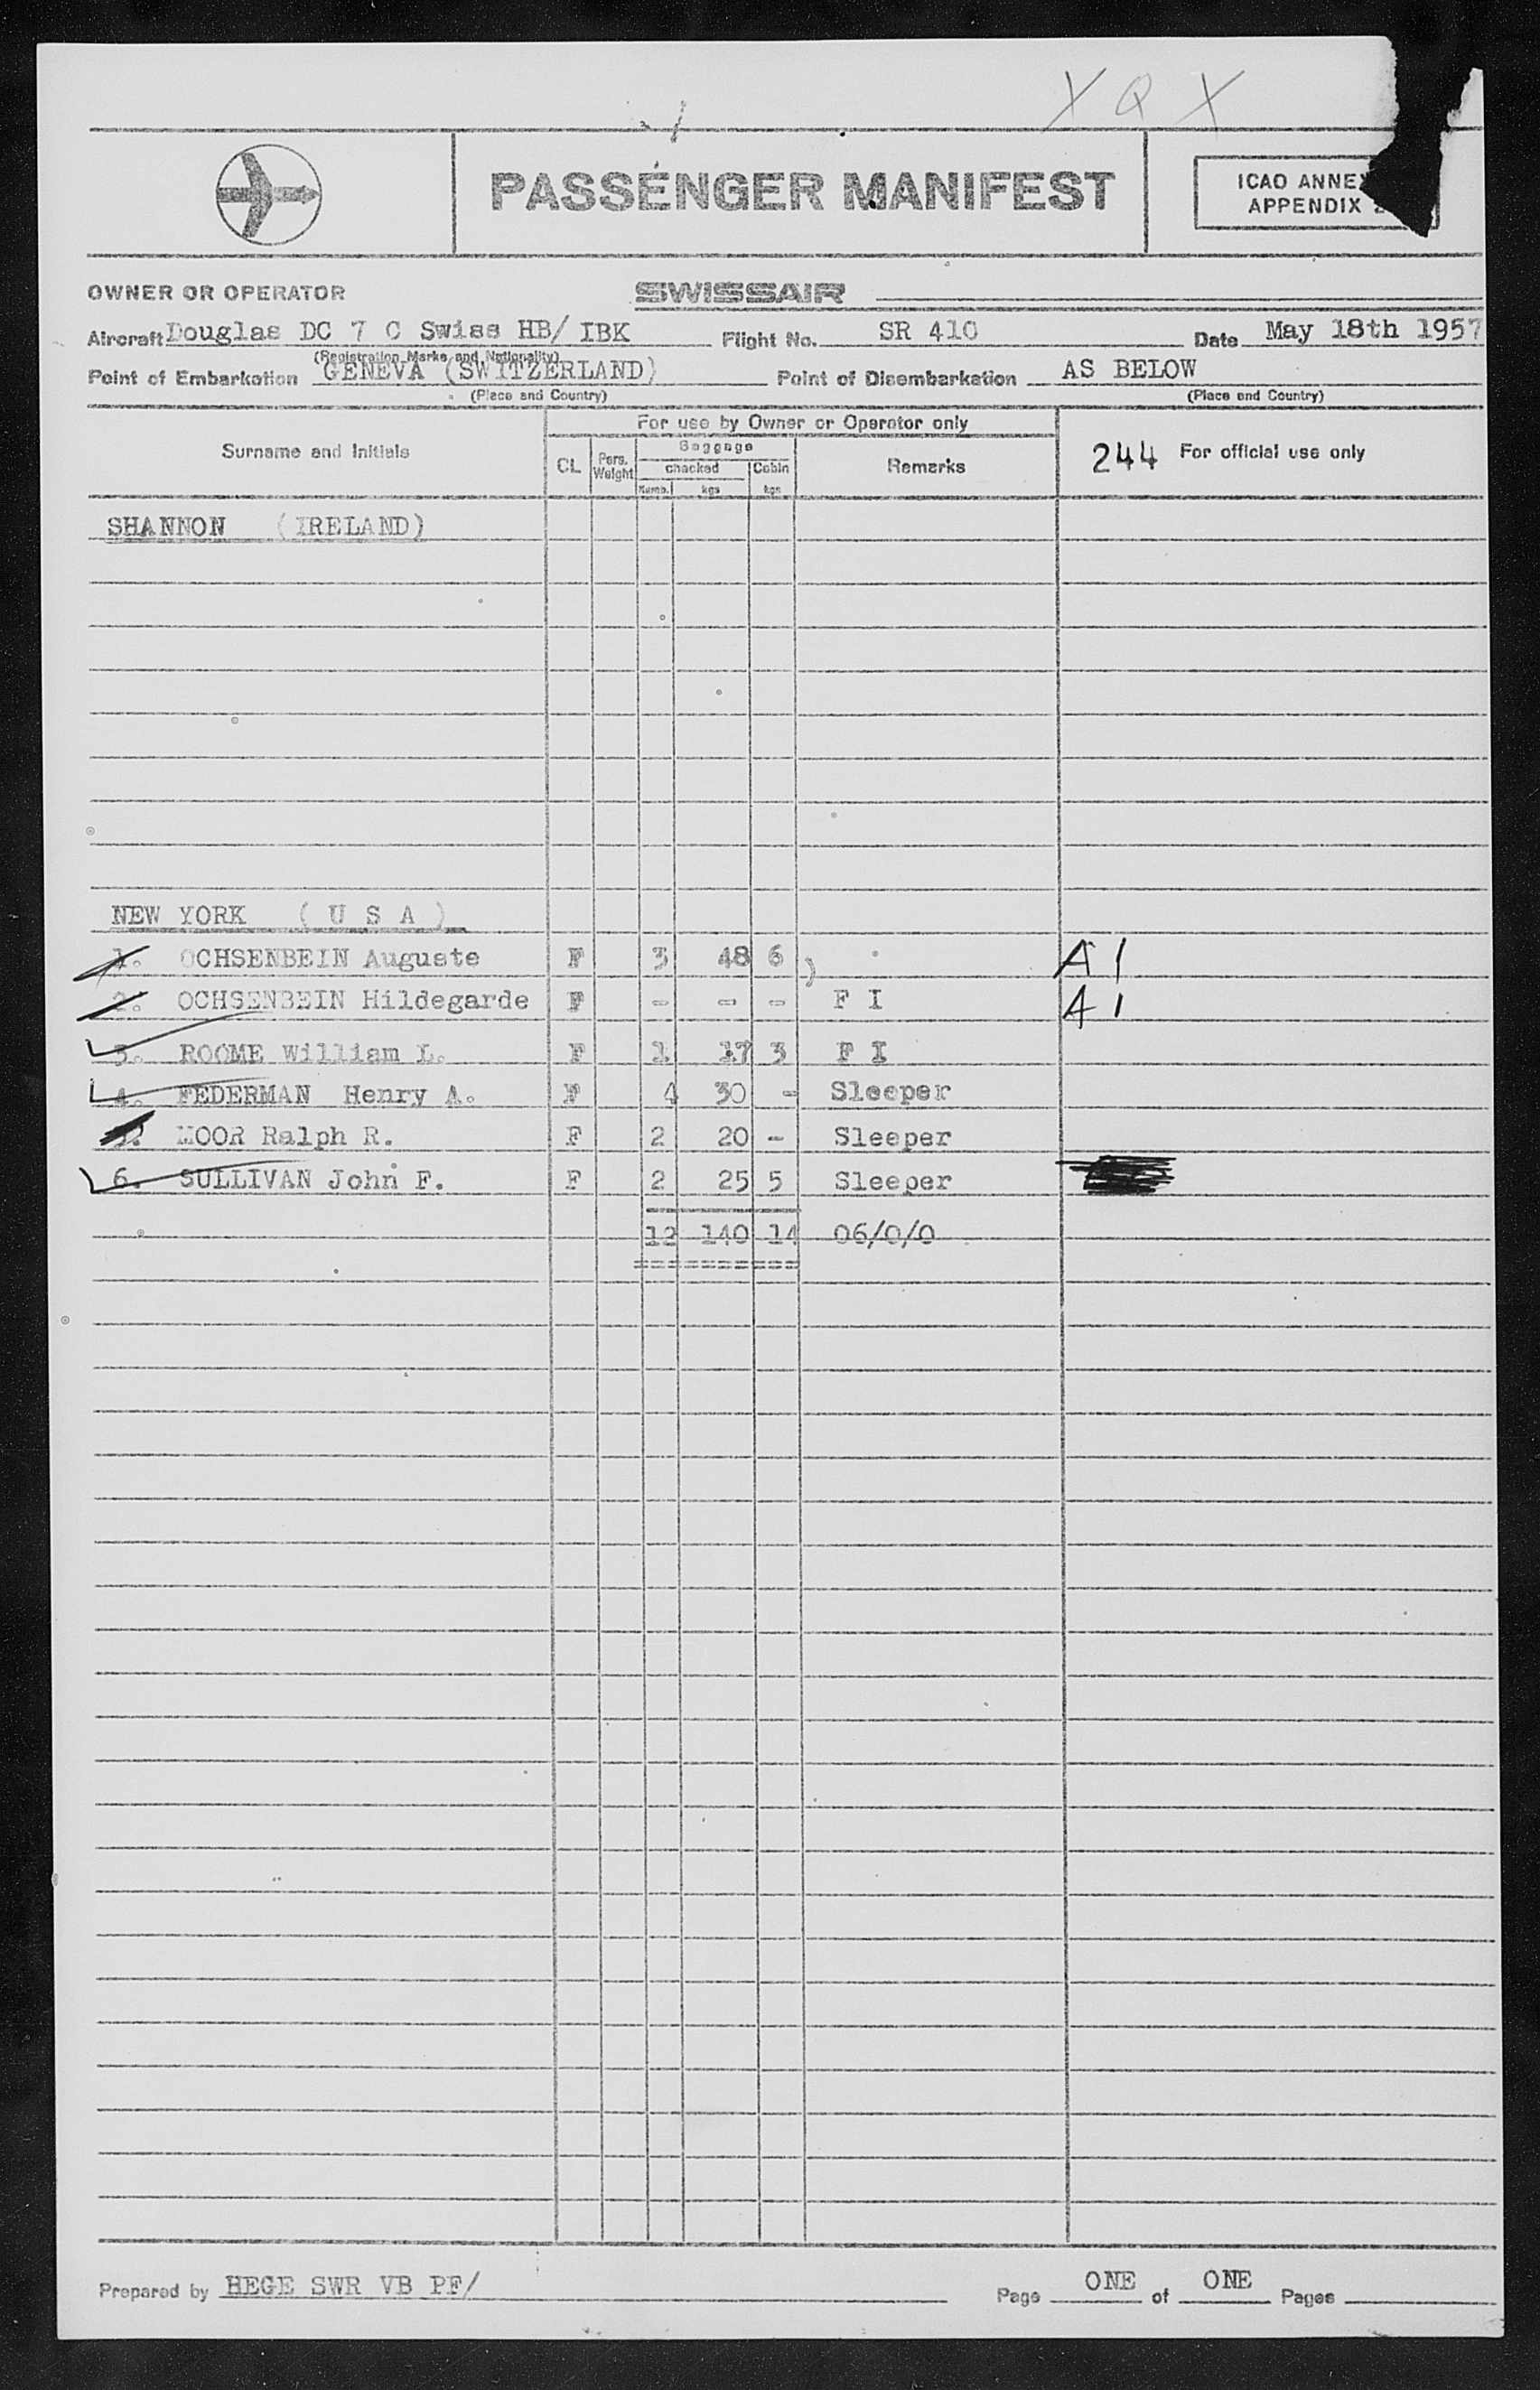 X Q X
PASSENGER MANIFEST
ICAO ANNEX
APPENDIX 2
OWNER OR OPERATOR SWISSAIR
Aircraft Douglas DC 7 C Swiss HB/ IBK Flight No. SR 410 Date May 18th 1957
(Registration Marks and Nationality)
Point of Embarkation GENEVA (SWITZERLAND) Point of Disembarkation AS BELOW
(Place and Country) (Place and Country)
For use by Owner or Operator only
Surname and Initials CL Pers. Weight Baggage checked Numb. kgs Cabin kgs Remarks 244 For official use only
SHANNON (IRELAND)
NEW YORK ( U S A )
1. OCHSENBEIN Auguste F 3 48 6 ) A 1
2. OCHSENBEIN Hildegarde F - - - F I A 1
3. ROOME William L. F 1 17 3 F I
4. FEDERMAN Henry A. F 4 30 - Sleeper
5. MOOR Ralph R. F 2 20 - Sleeper
6. SULLIVAN John F. F 2 25 5 Sleeper
12 140 14 06/0/0
Prepared by HEGE SWR VB PF/ Page ONE of ONE Pages